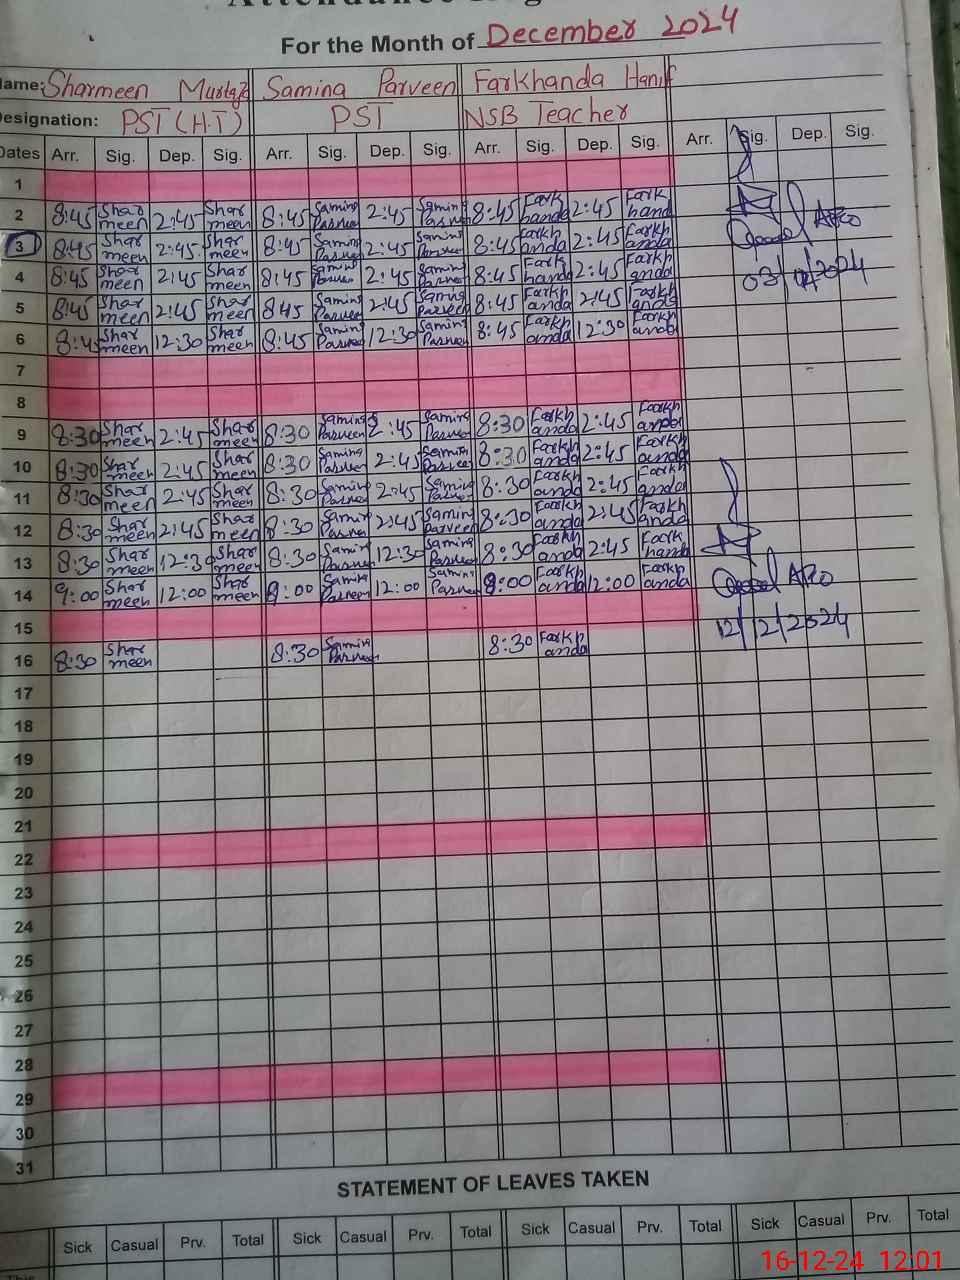 For the Month of December 2024
Name: Sharmeen Murtaza Samina Parveen Farkhanda Hanif
Designation: PST (H.T) PST NSB Teacher
Dates Arr. Sig. Dep. Sig. Arr. Sig. Dep. Sig. Arr. Sig. Dep. Sig. Arr. Sig. Dep. Sig.
1
2 8:45 Sharmeen 2:45 Sharmeen 8:45 Samina Parveen 2:45 Samina Parveen 8:45 Farkhanda 2:45 Farkhand
3 8:45 Sharmeen 2:45 Sharmeen 8:45 Samina Parveen 2:45 Samina Parveen 8:45 Farkhanda 2:45 Farkhanda
4 8:45 Sharmeen 2:45 Sharmeen 8:45 Samina Parveen 2:45 Samina Parveen 8:45 Farkhanda 2:45 Farkhanda
03/12/2024
5 8:45 Sharmeen 2:45 Sharmeen 845 Samina Parveen 2:45 Samina Parveen 8:45 Farkhanda 2:45 Farkhanda
6 8:45 Sharmeen 12:30 Sharmeen 8:45 Samina Parveen 12:30 Samina Parveen 8:45 Farkhanda 12:30 Farkhanda
7
8
9 8:30 Sharmeen 2:45 Sharmeen 8:30 Samina Parveen 2:45 Samina Parveen 8:30 Farkhanda 2:45 Farkhanda
10 8:30 Sharmeen 2:45 Sharmeen 8:30 Samina Parveen 2:45 Samina Parveen 8:30 Farkhanda 2:45 Farkhanda
11 8:30 Sharmeen 2:45 Sharmeen 8:30 Samina Parveen 2:45 Samina Parveen 8:30 Farkhanda 2:45 Farkhanda
12 8:30 Sharmeen 2:45 Sharmeen 8:30 Samina Parveen 2:45 Samina Parveen 8:30 Farkhanda 2:45 Farkhanda
13 8:30 Sharmeen 12:30 Sharmeen 8:30 Samina Parveen 12:30 Samina Parveen 8:30 Farkhanda 2:45 Farkhanda
14 9:00 Sharmeen 12:00 Sharmeen 9:00 Samina Parveen 12:00 Samina Parveen 9:00 Farkhanda 12:00 Farkhanda
15
12/12/2024
16 8:30 Sharmeen 8:30 Samina Parveen 8:30 Farkhanda
17
18
19
20
21
22
23
24
25
26
27
28
29
30
31
STATEMENT OF LEAVES TAKEN
Sick Casual Prv. Total Sick Casual Prv. Total Sick Casual Prv. Total Sick Casual Prv. Total
16-12-24 12:01